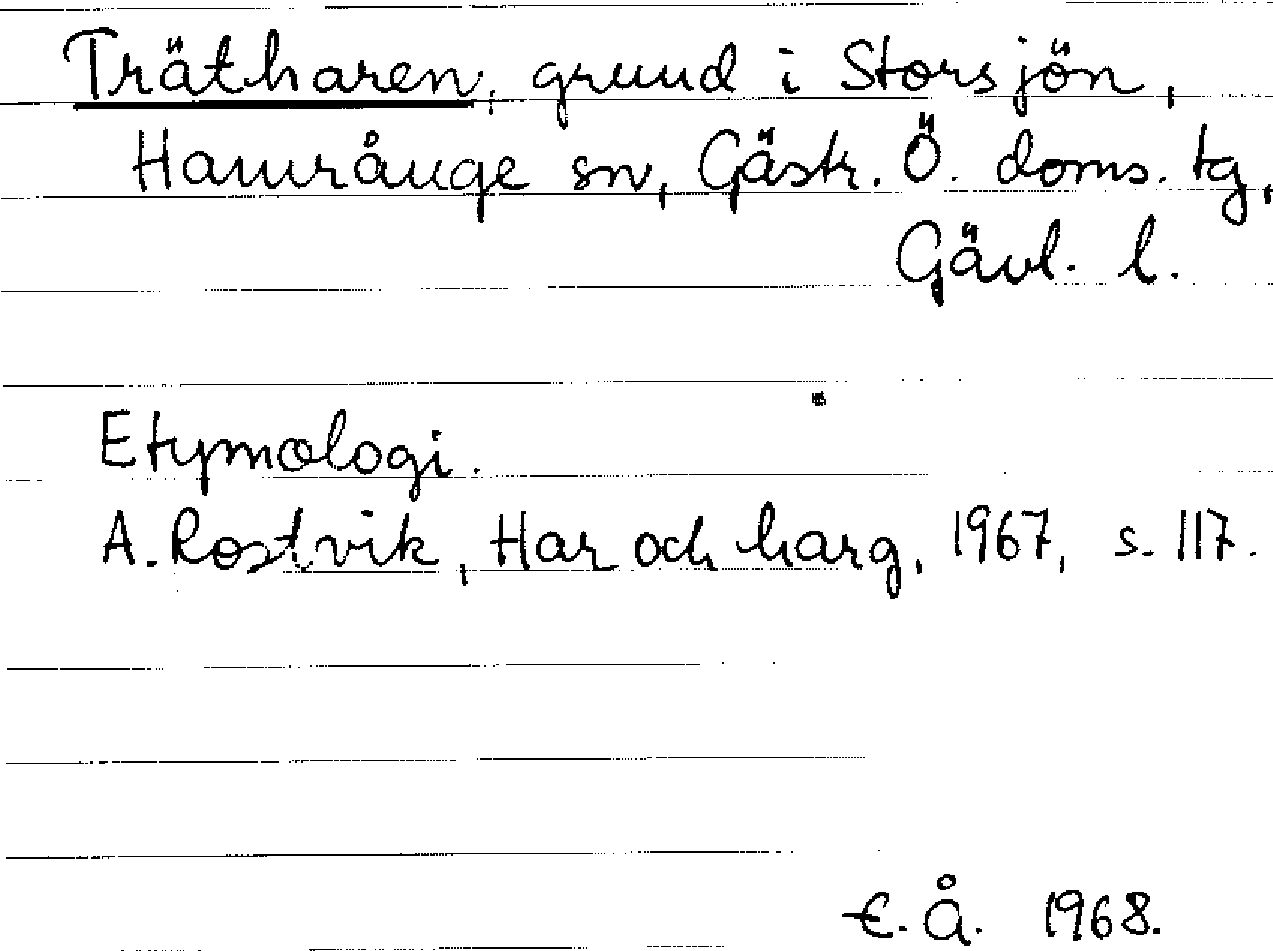 Trätharen, grund i Storsjön,
Hamrånge sn, Gästr. Ö. doms. tg,
Gävl. l.
Etymologi.
A. Rostvik, Har och harg, 1967, s. 117.
E. Å. 1968.